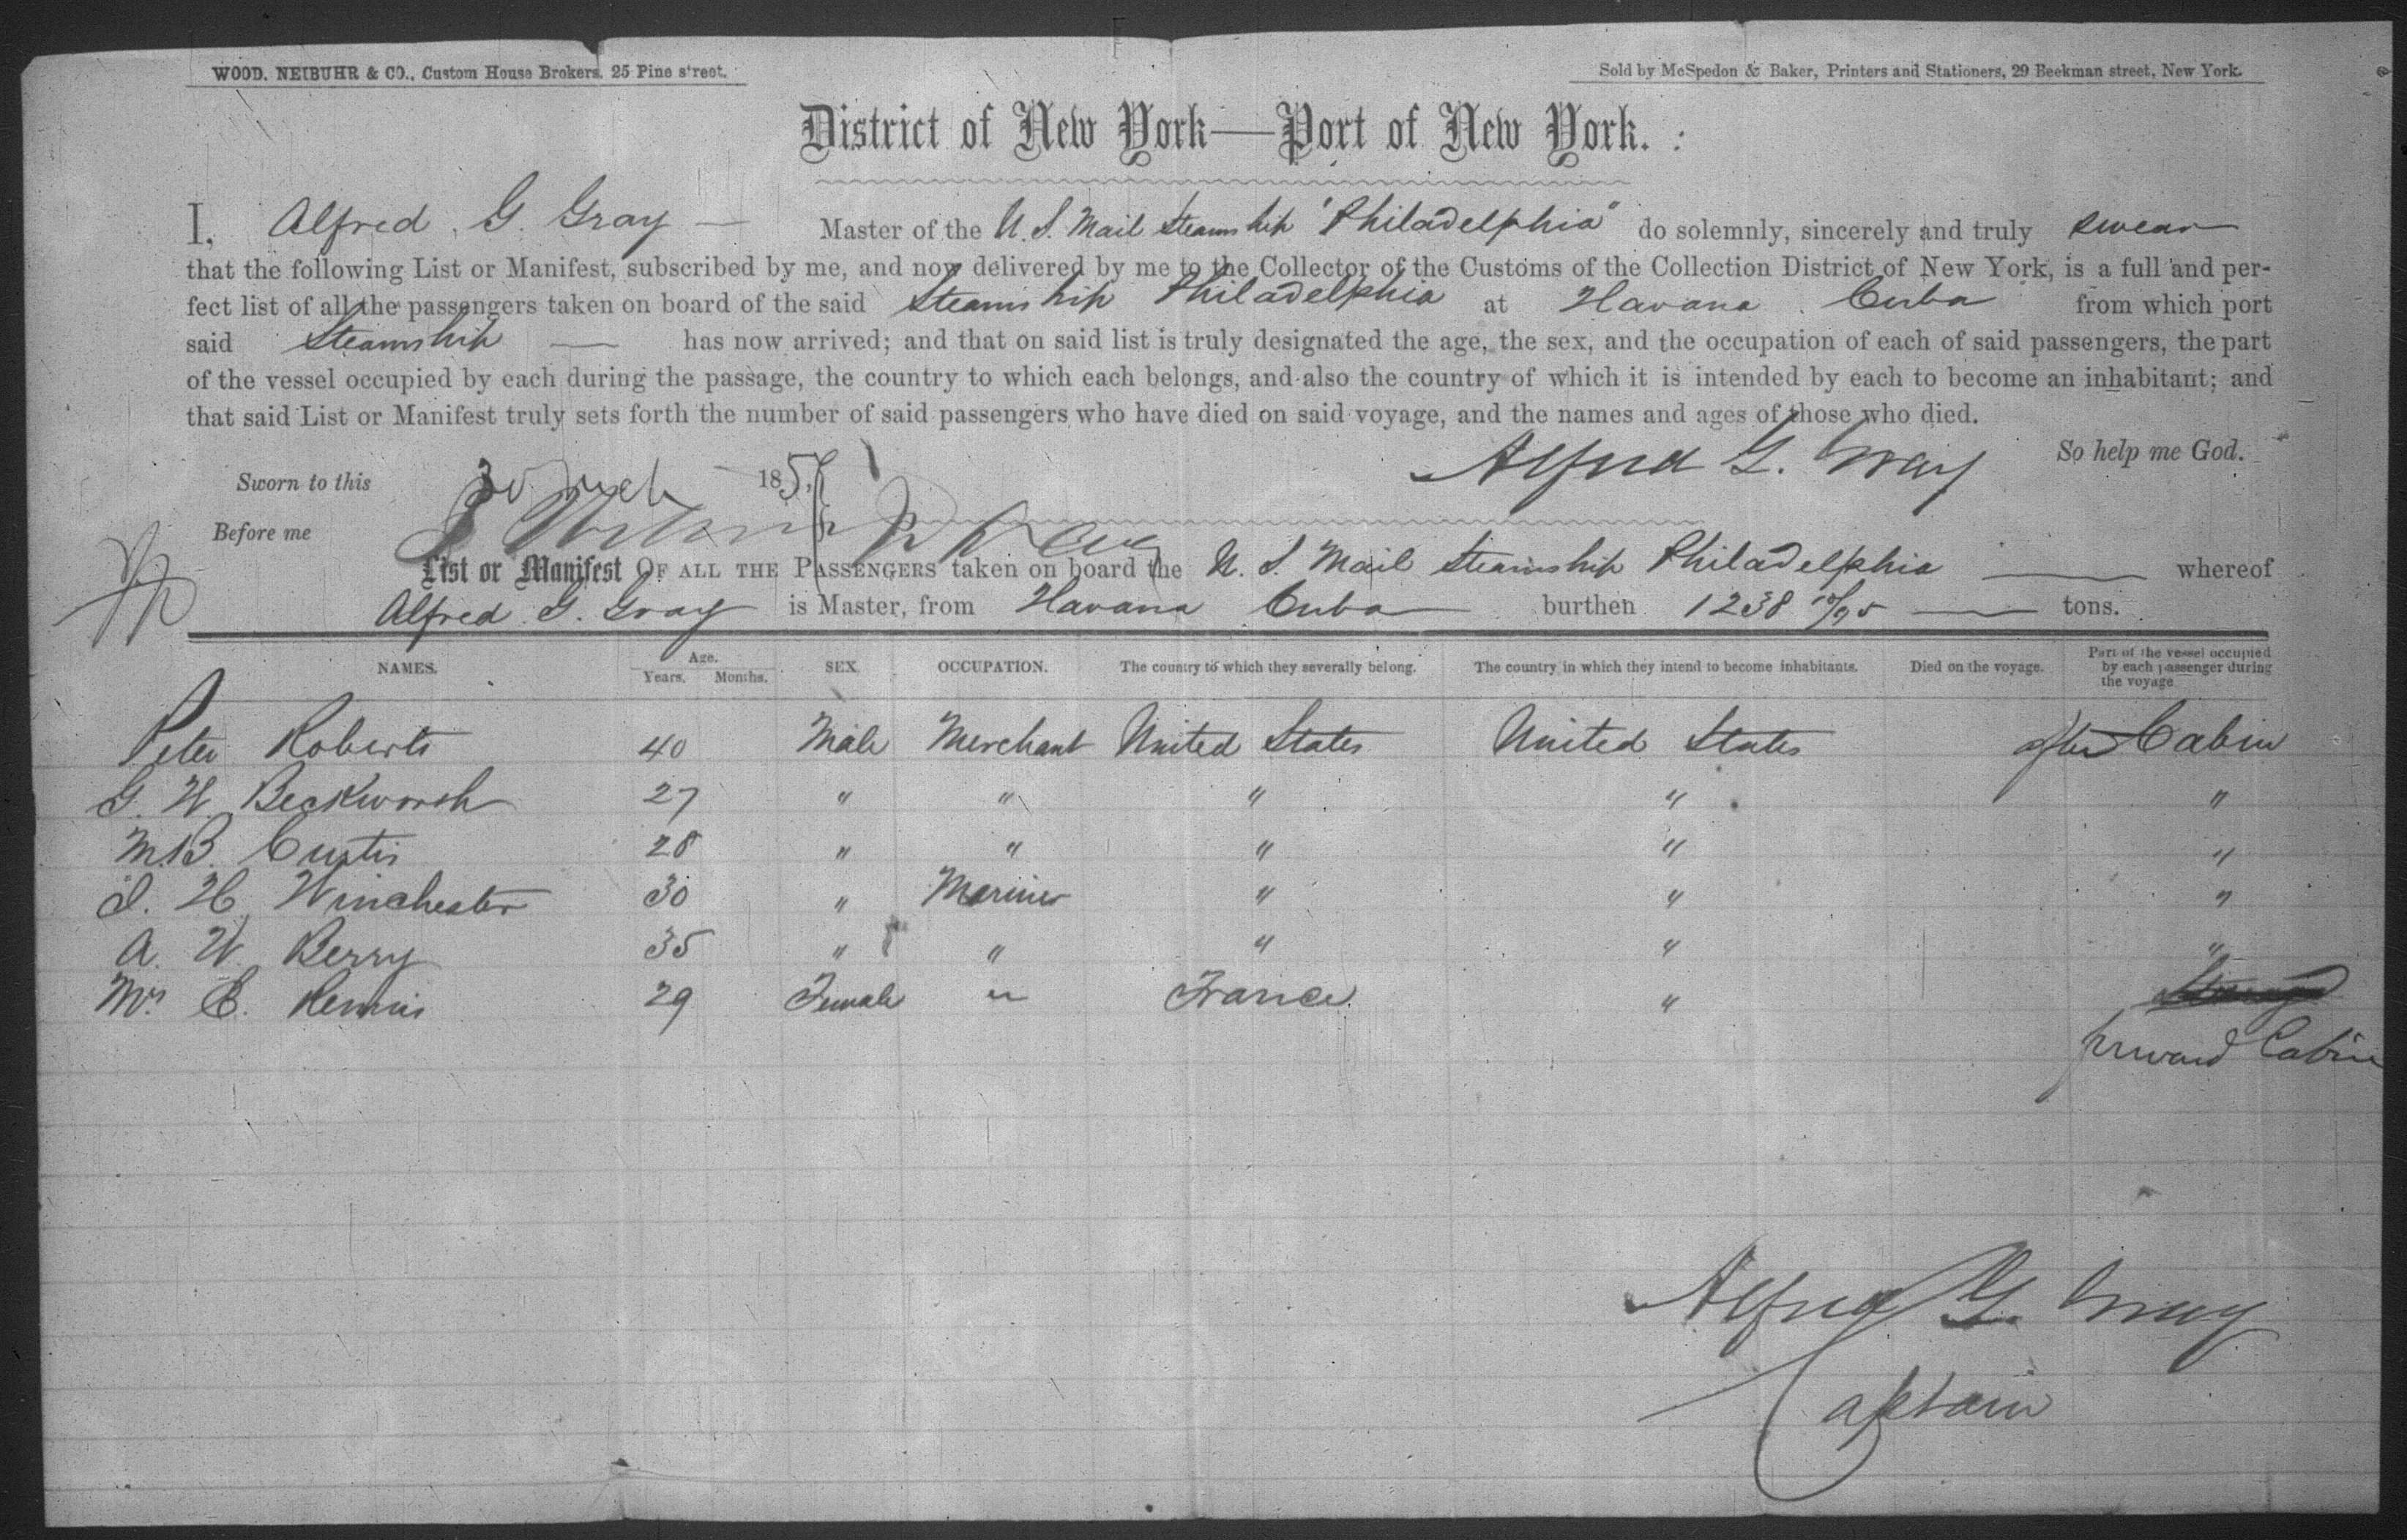 WOOD, NEIBUHR & CO., Custom House Brokers, 25 Pine street.
Sold by McSpedon & Baker, Printers and Stationers, 29 Beekman street, New York.
District of New York—Port of New York.
I, Alfred G. Gray — Master of the U. S. Mail Steamship "Philadelphia" do solemnly, sincerely and truly swear
that the following List or Manifest, subscribed by me, and now delivered by me to the Collector of the Customs of the Collection District of New York, is a full and per-
fect list of all the passengers taken on board of the said Steamship Philadelphia at Havana Cuba from which port
said Steamship — has now arrived; and that on said list is truly designated the age, the sex, and the occupation of each of said passengers, the part
of the vessel occupied by each during the passage, the country to which each belongs, and also the country of which it is intended by each to become an inhabitant; and
that said List or Manifest truly sets forth the number of said passengers who have died on said voyage, and the names and ages of those who died.
So help me God.
Alfred G. Gray
Sworn to this 30 185
Before me
List or Manifest OF ALL THE PASSENGERS taken on board the U. S. Mail Steamship Philadelphia — whereof
Alfred G. Gray is Master, from Havana Cuba — burthen 1238 /95 — tons.
NAMES. Age. Years. Months. SEX. OCCUPATION. The country to which they severally belong. The country in which they intend to become inhabitants. Died on the voyage. Part of the vessel occupied by each passenger during the voyage
Peter Roberts 40 Male Merchant United States United States after Cabin
G. W. Beckworth 27 " " " " "
M.B. Curtis 28 " " " " "
I. H. Winchester 30 " Mariner " " "
A. W. Berry 35 " " " " "
Mrs E. 29 Female " France "
forward Cabin
Alfred G. Gray
Captain